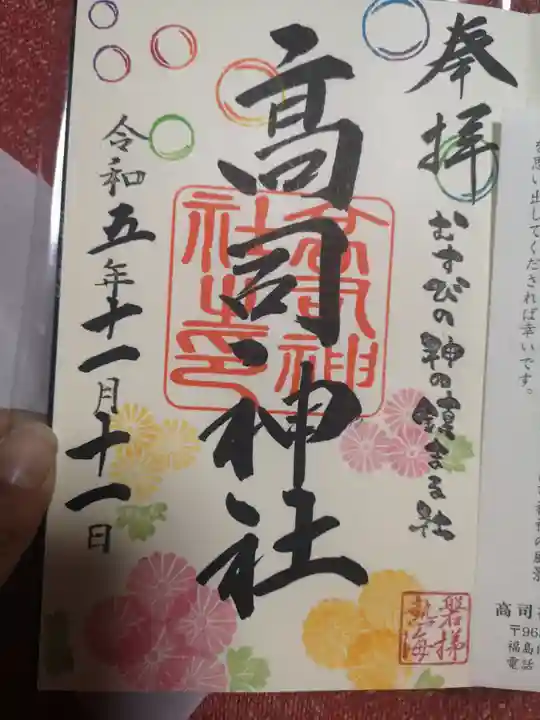 奉拝
むすびの神の鎮まる社
高司神社
令和五年十一月十一日
磐梯
熱海
を思い出してくだされば幸いです。
高司
〒96
福島
電話